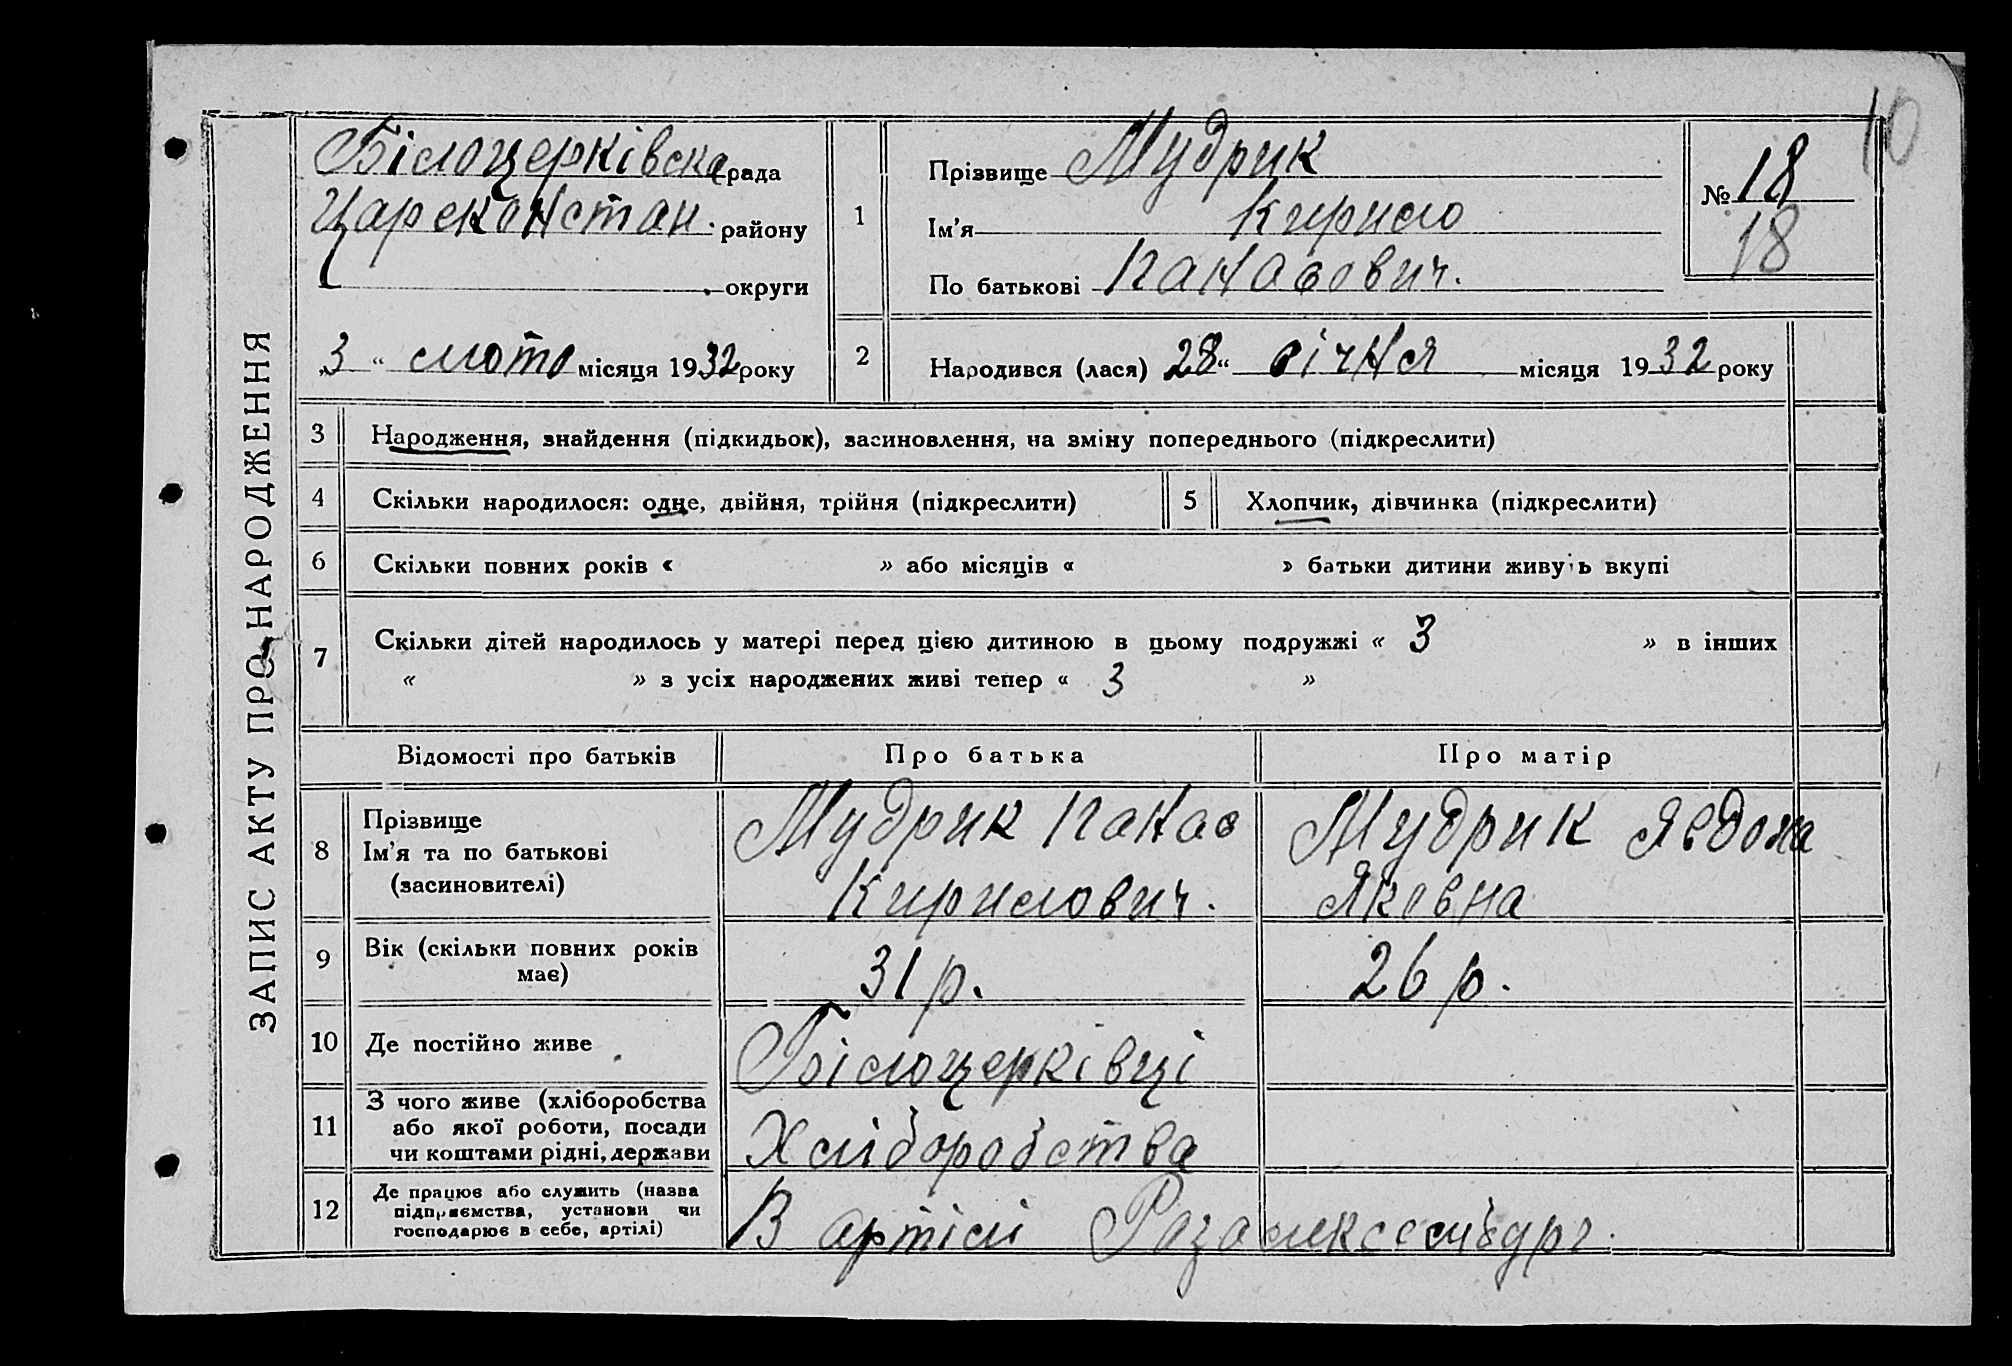 10
ЗАПИС АКТУ ПРО НАРОДЖЕННЯ
Білоцерківска рада
Цареконстан. району
округи
„3“ люто місяця 1932 року
1
Прізвище Мудрик
Ім'я Кирило
По батькові Панасович.
№ 18
18
2 Народився (лася) 28 “ січня місяця 1932 року
3 Народження, знайдення (підкидьок), засиновлення, на зміну попереднього (підкреслити)
4 Скільки народилося: одне, двійня, трійня (підкреслити) 5 Хлопчик, дівчинка (підкреслити)
6 Скільки повних років « » або місяців « » батьки дитини живуть вкупі
7 Скільки дітей народилось у матері перед цією дитиною в цьому подружжі « 3 » в інших
« » з усіх народжених живі тепер « 3 »
Відомості про батьків Про батька Про матір
8 Прізвище
Ім'я та по батькові
(засиновителі)
Мудрик Панас
Кирилович.
Мудрик Явдоха
Яковна
9 Вік (скільки повних років
має)
31 р.
26 р.
10 Де постійно живе Білоцерківці
11 З чого живе (хліборобства
або якої роботи, посади
чи коштами рідні, держави
Хліборобства
12 Де працює або служить (назва
підприємства, установи чи
господарює в себе, артілі)
В артілі Роза